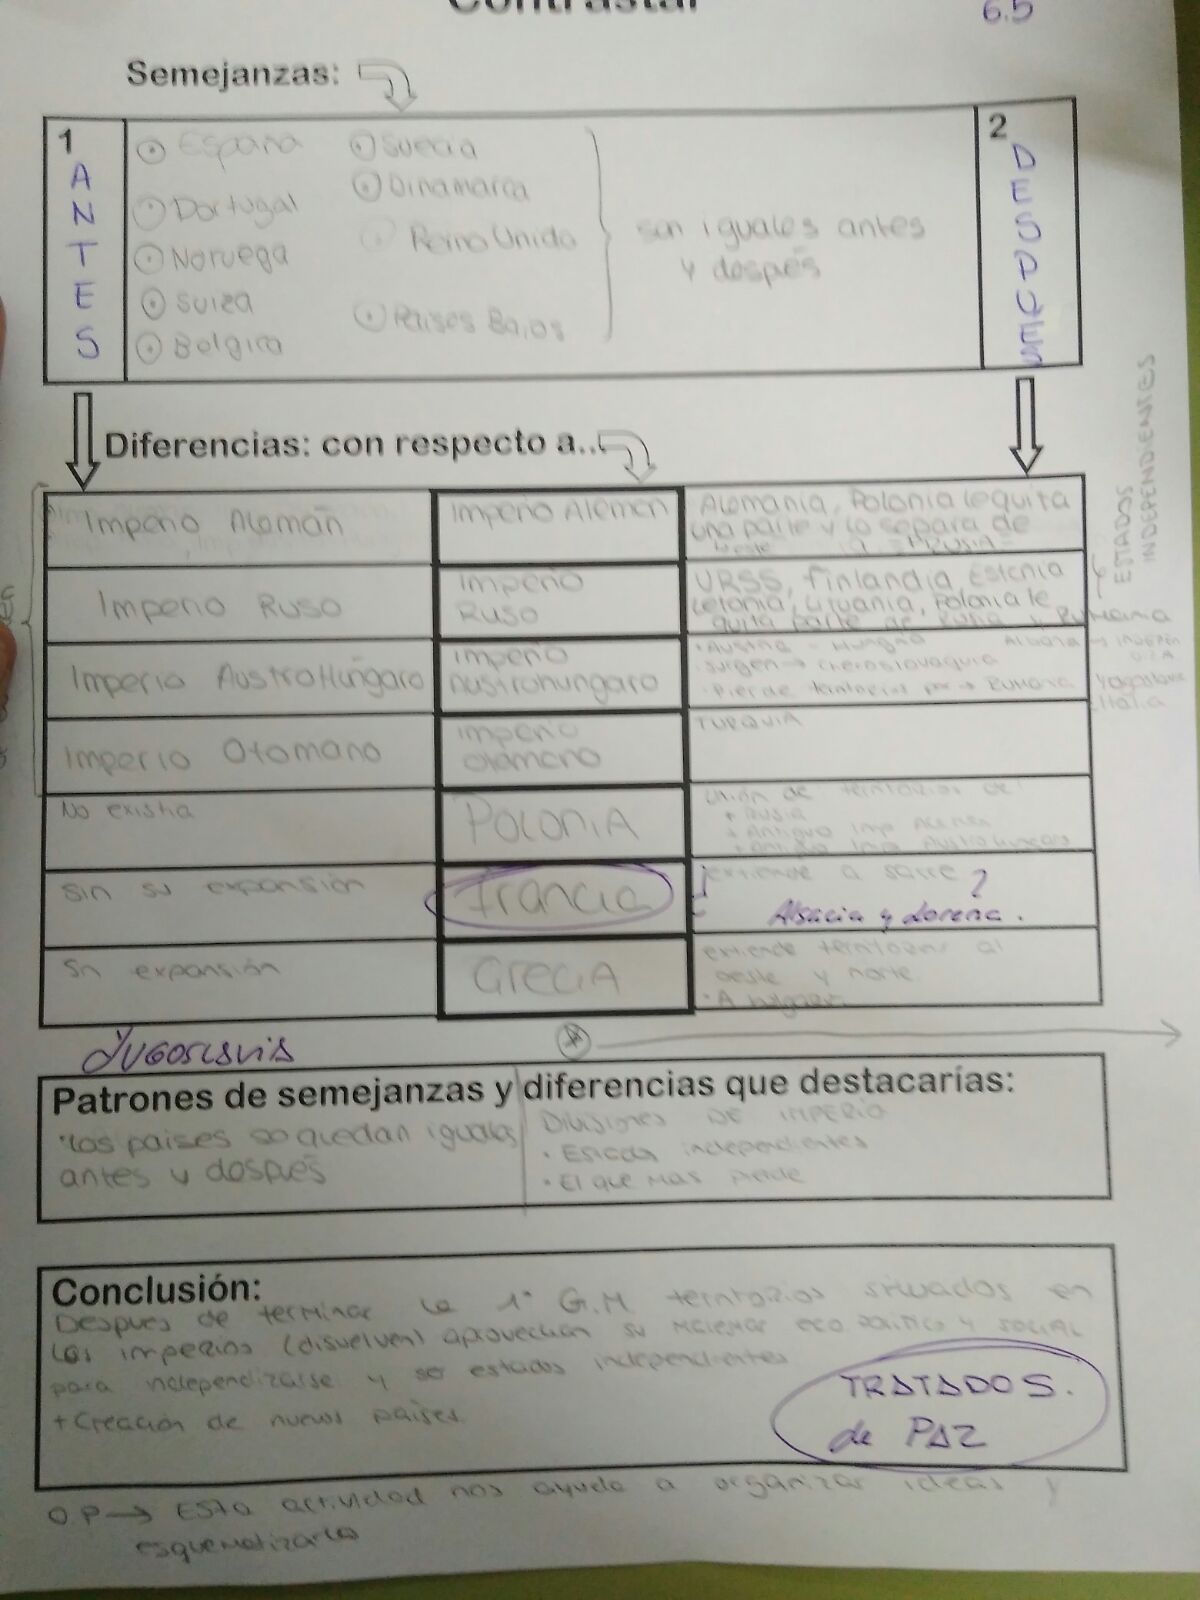 Contrastar
6.5
Semejanzas:
1
ANTES
España
Portugal
Noruega
Suiza
Belgica
Suecia
Dinamarca
Reino Unido
Paises Bajos
son iguales antes
y despúes
2
DESPUES
Diferencias: con respecto a...
Imperio Alemán
Imperio Alemán
Alemania, Polonia le quita
una parte y lo separa de
ESTADOS
INDEPENDIENTES
Imperio Ruso
Imperio
Ruso
URSS, Finlandia, Estonia
Letonia, Lituania, Polonia le
quita parte de Rusia y Rumania
Imperio AustroHúngaro
Imperio
Austrohungaro
• Austria - Hungria
surgen → Checoslovaquia
• Pierde territorios por → Rumania Yugoslavia
Italia
Imperio Otomano
Imperio
otomano
TURQUIA
No existia
POLONIA
Unión de territorios de:
+ Rusia
+ Antiguo Imp Alemán
+ Antiguo Imp. Austrohungaro
sin su expansión
Francia
extiende a sarre ?
Alsacia y Lorena.
sn expansión
GRECIA
extiende territorios al
oeste y norte.
Yugoslavia
Patrones de semejanzas y diferencias que destacarías:
•los paises se quedan iguales
antes y despúes
Divisiones DE IMPERIO
• Estados independientes
• El que mas pierde
Conclusión:
Despues de terminar la 1ª G.M. territorios situados en
los imperios (disuelven) aprovechan su malestar eco politico y social
para independizarse y ser estados independientes
+ Creación de nuevos paises.
TRATADOS.
de PAZ
O.P → Esta actividad nos ayuda a organizar ideas y
esquematizarlas